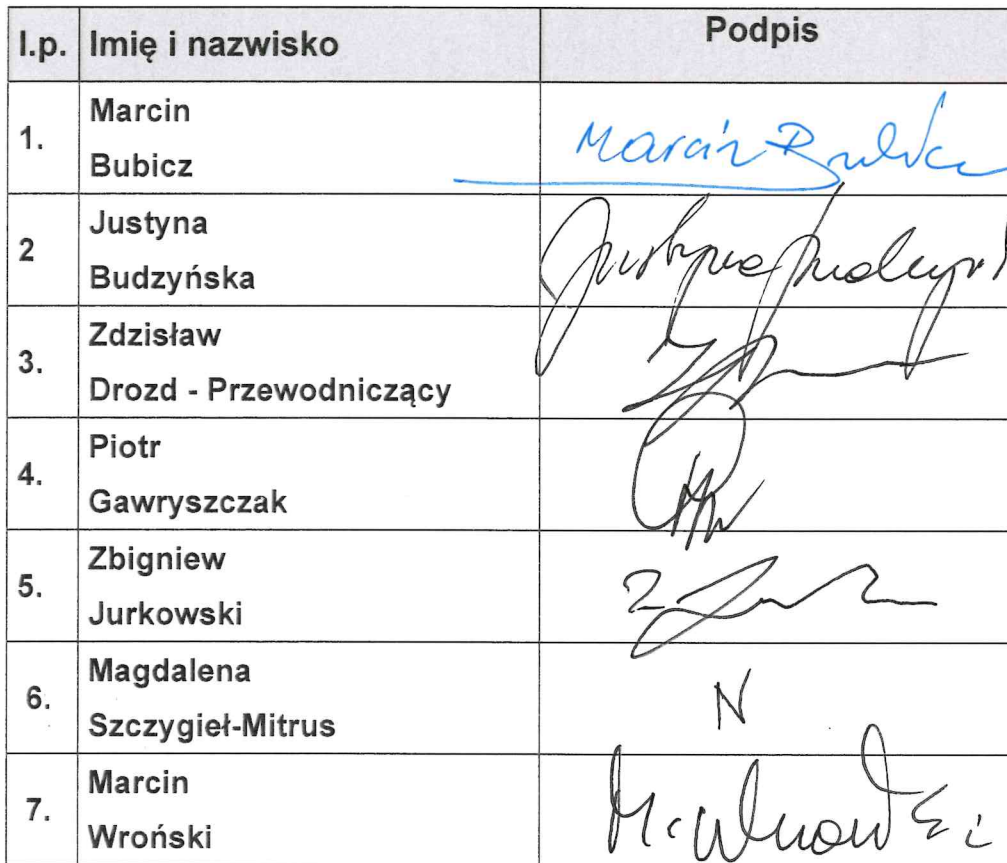 l.p. Imię i nazwisko Podpis
1. Marcin
Bubicz
Marcin Bubicz
2 Justyna
Budzyńska
Justyna
3. Zdzisław
Drozd - Przewodniczący
4. Piotr
Gawryszczak
5. Zbigniew
Jurkowski
Z
6. Magdalena
Szczygieł-Mitrus
N
7. Marcin
Wroński